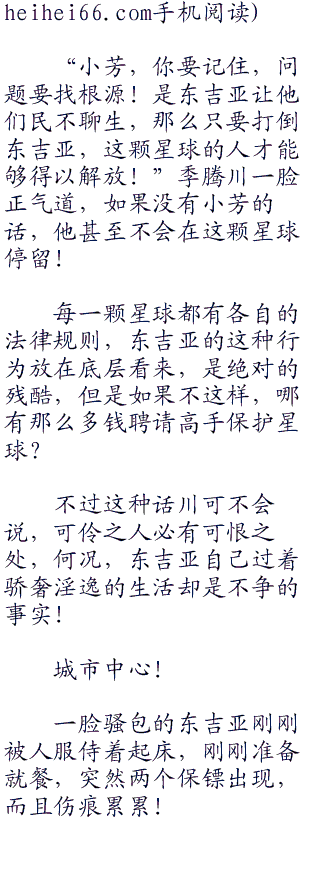 heihei66.com手机阅读)
“小芳，你要记住，问
题要找根源！是东吉亚让他
们民不聊生，那么只要打倒
东吉亚，这颗星球的人才能
够得以解放！”季腾川一脸
正气道，如果没有小芳的
话，他甚至不会在这颗星球
停留！
每一颗星球都有各自的
法律规则，东吉亚的这种行
为放在底层看来，是绝对的
残酷，但是如果不这样，哪
有那么多钱聘请高手保护星
球？
不过这种话川可不会
说，可伶之人必有可恨之
处，何况，东吉亚自己过着
骄奢淫逸的生活却是不争的
事实！
城市中心！
一脸骚包的东吉亚刚刚
被人服侍着起床，刚刚准备
就餐，突然两个保镖出现，
而且伤痕累累！